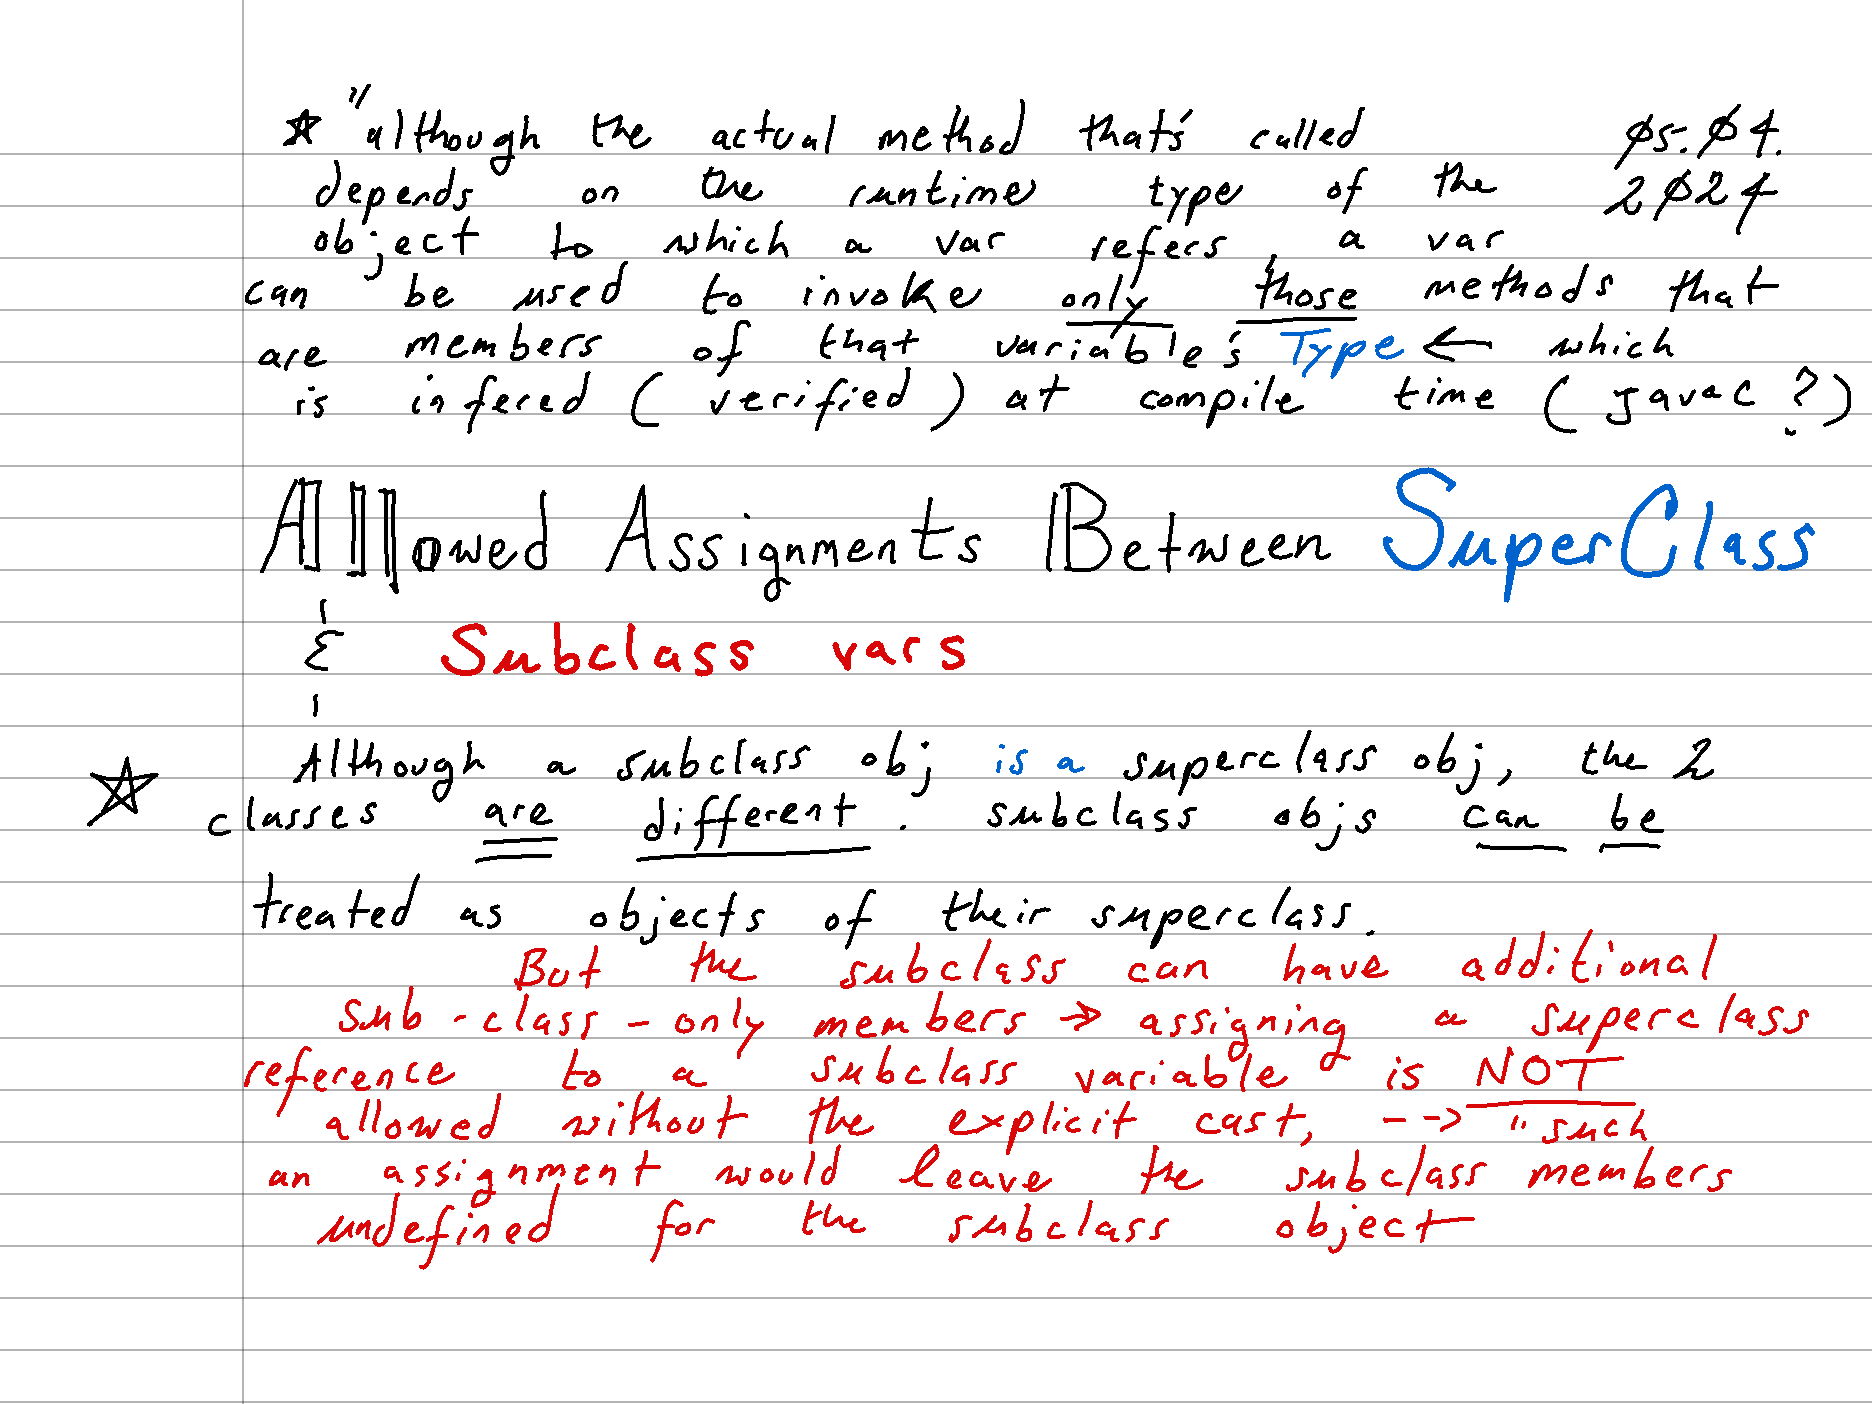 ☆ "although the actual method that's called 05.04.
depends on the runtime type of the 2024
object to which a var refers, a var
can be used to invoke only those methods that
are members of that variable's Type ← which
is infered (verified) at compile time (javac?)
Allowed Assignments Between SuperClass
& Subclass vars
☆ Although a subclass obj is a superclass obj, the 2
classes are different. subclass objs can be
treated as objects of their superclass.
But the subclass can have additional
sub-class-only members → assigning a superclass
reference to a subclass variable is NOT
allowed without the explicit cast, --> "such
an assignment would leave the subclass members
undefined for the subclass object